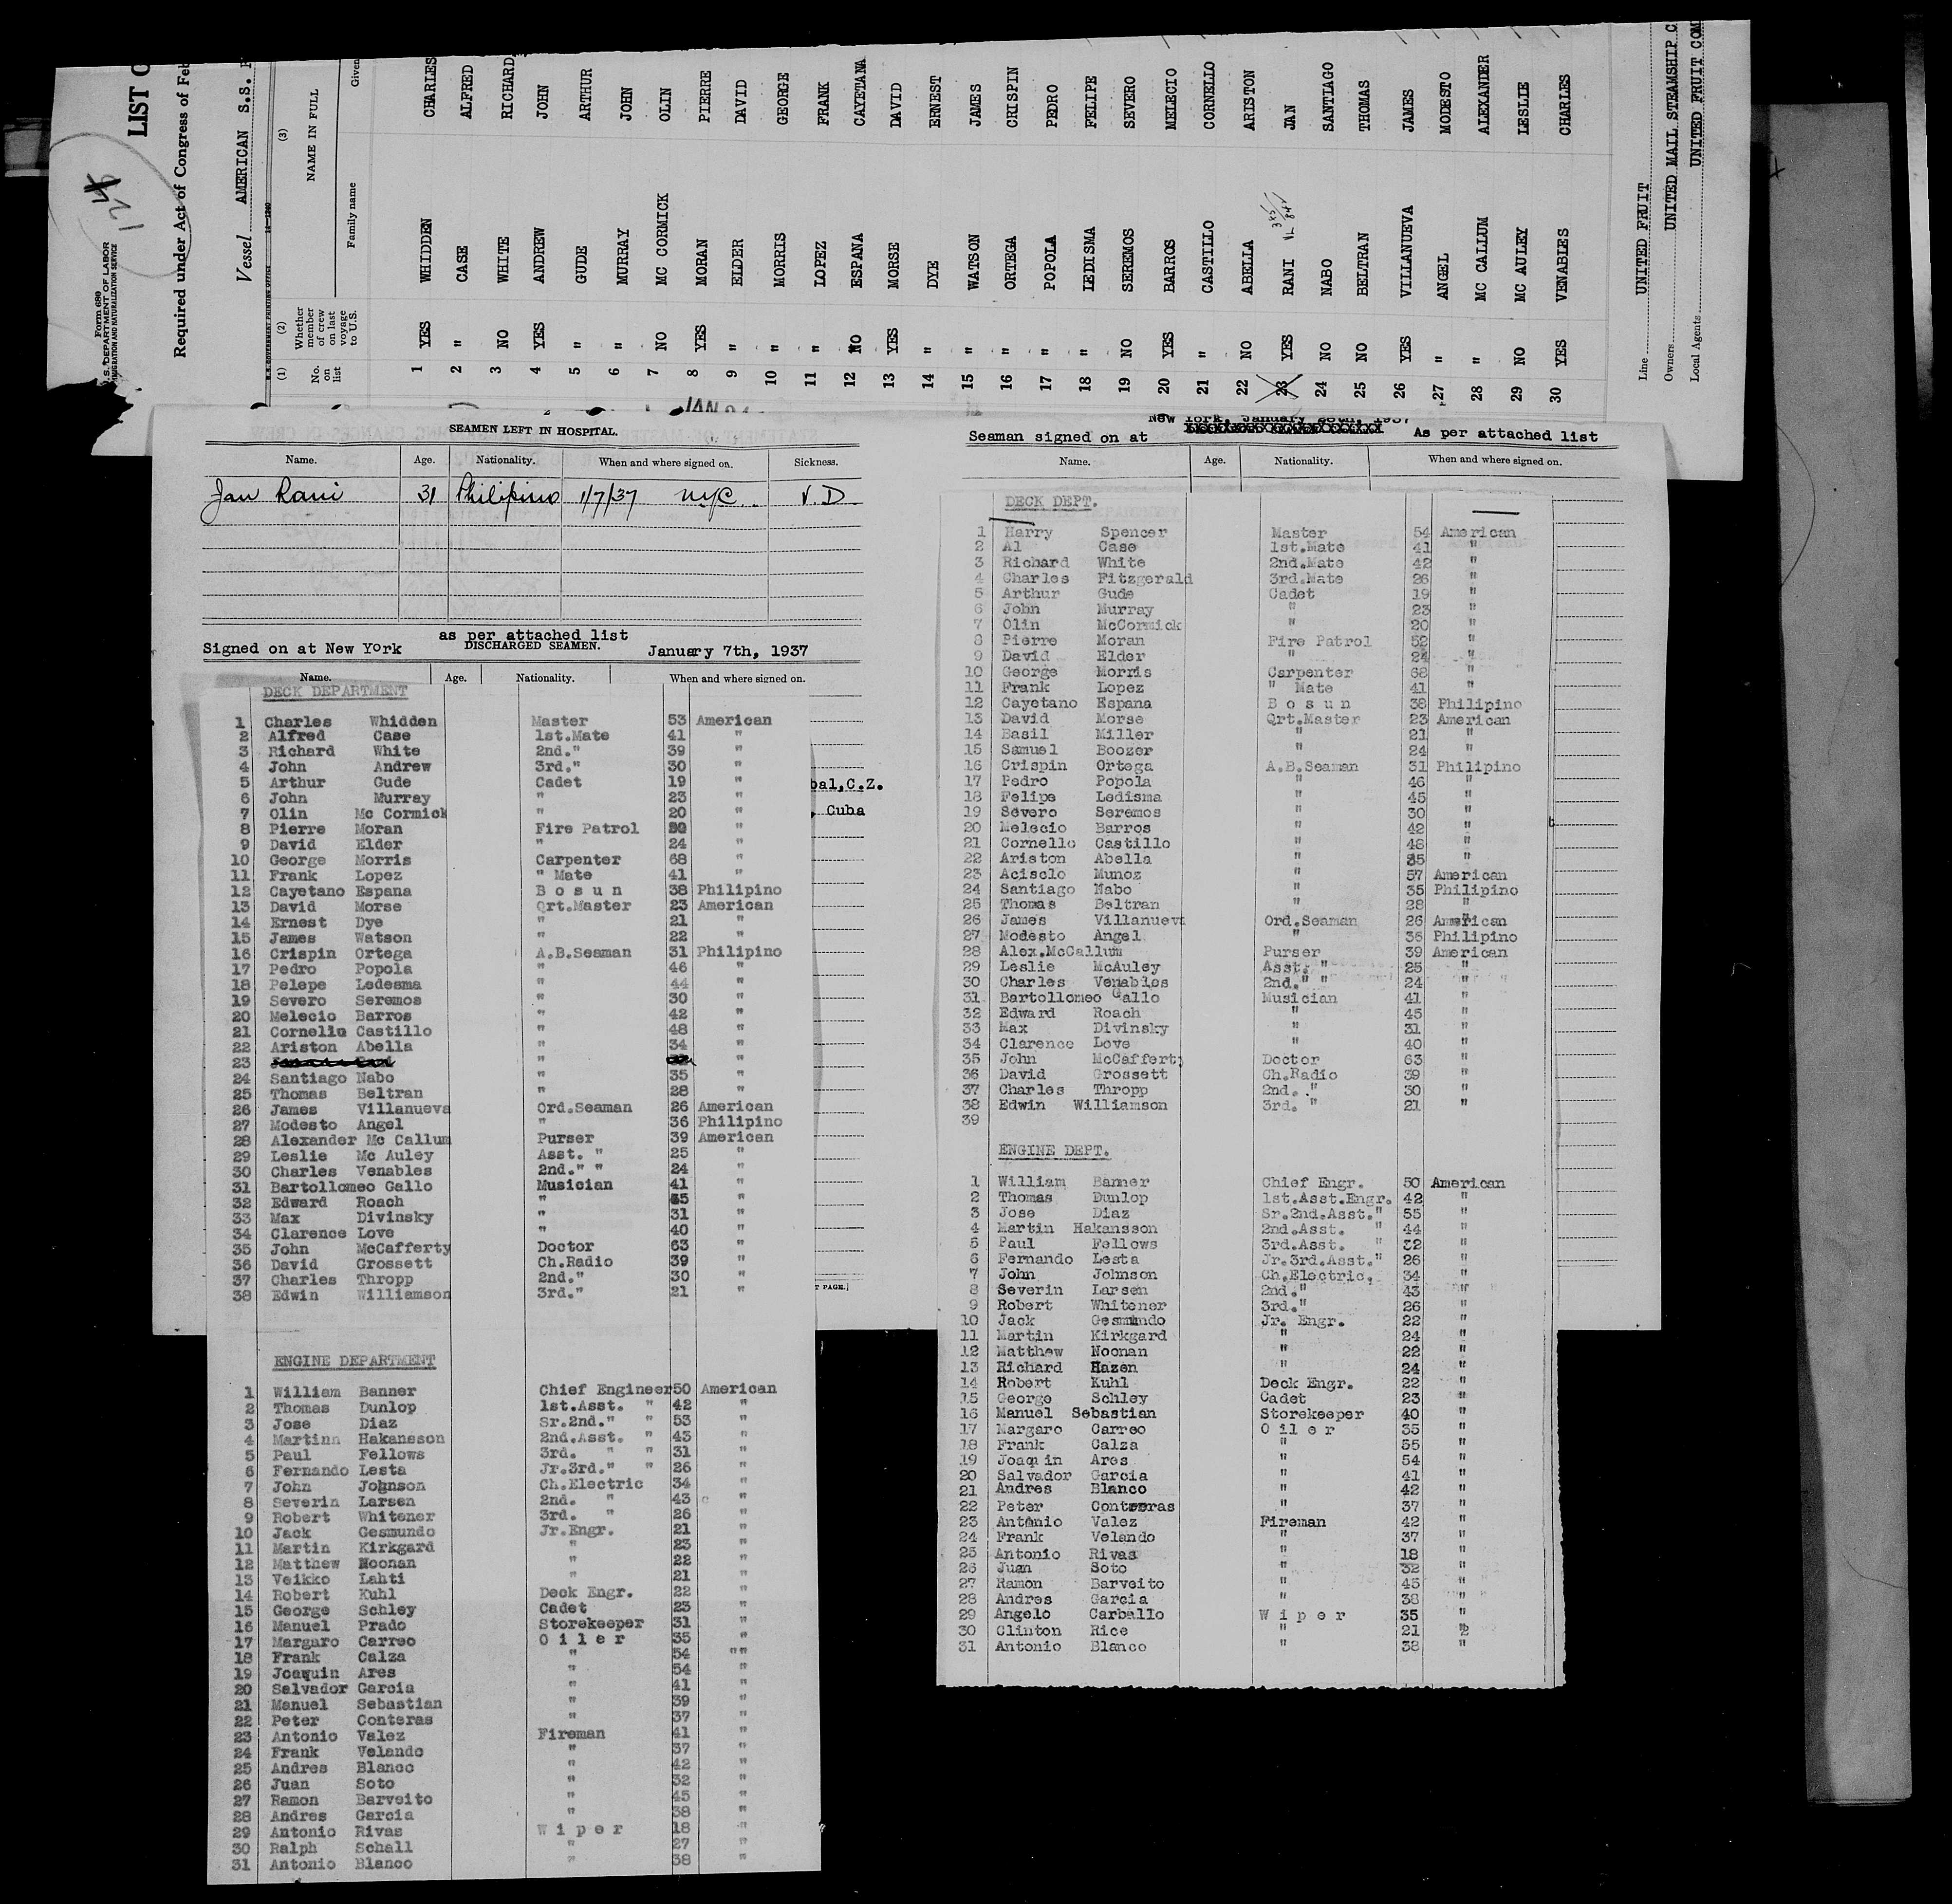 Form 680
U.S. DEPARTMENT OF LABOR
IMMIGRATION AND NATURALIZATION SERVICE
LIST O
Required under Act of Congress of Feb
Vessel AMERICAN S.S.
(1) (2) (3)
No. on list Whether member of crew on last voyage to U.S. NAME IN FULL
Family name Given
1 YES WHIDDEN CHARLES
2 " CASE ALFRED
3 NO WHITE RICHARD
4 YES ANDREW JOHN
5 " GUDE ARTHUR
6 " MURRAY JOHN
7 NO MC CORMICK OLIN
8 YES MORAN PIERRE
9 " ELDER DAVID
10 " MORRIS GEORGE
11 " LOPEZ FRANK
12 NO ESPANA CAYETANA
13 YES MORSE DAVID
14 " DYE ERNEST
15 " WATSON JAMES
16 " ORTEGA CRISPIN
17 " POPOLA PEDRO
18 " LEDISMA FELIPE
19 NO SEREMOS SEVERO
20 YES BARROS MELECIO
21 " CASTILLO CORNELLO
22 NO ABELLA ARISTON
23 YES RANI JAN
24 NO NABO SANTIAGO
25 NO BELTRAN THOMAS
26 YES VILLANUEVA JAMES
27 " ANGEL MODESTO
28 " MC CALLUM ALEXANDER
29 NO MC AULEY LESLIE
30 YES VENABLES CHARLES
Line UNITED FRUIT
Owners UNITED MAIL STEAMSHIP C
Local Agents UNITED FRUIT COM
SEAMEN LEFT IN HOSPITAL.
Name. Age. Nationality. When and where signed on. Sickness.
Jan Rani 31 Philipino 1/7/37 NYC V.D
as per attached list
Signed on at New York DISCHARGED SEAMEN. January 7th, 1937
Name. Age. Nationality. When and where signed on.
DECK DEPARTMENT
1 Charles Whidden Master 53 American
2 Alfred Case 1st.Mate 41 "
3 Richard White 2nd." 39 "
4 John Andrew 3rd." 30 "
5 Arthur Gude Cadet 19 "
6 John Murray " 23 "
7 Olin Mc Cormick " 20 "
8 Pierre Moran Fire Patrol "
9 David Elder " 24 "
10 George Morris Carpenter 68 "
11 Frank Lopez " Mate 41 "
12 Cayetano Espana Bosun 38 Philipino
13 David Morse Qrt.Master 23 American
14 Ernest Dye " 21 "
15 James Watson " 22 "
16 Crispin Ortega A.B.Seaman 31 Philipino
17 Pedro Popola " 46 "
18 Pelepe Ledesma " 44 "
19 Severo Seremos " 30 "
20 Melecio Barros " 42 "
21 Cornellu Castillo " 48 "
22 Ariston Abella " 34 "
23 " "
24 Santiago Nabo " 35 "
25 Thomas Beltran " 28 "
26 James Villanueva Ord.Seaman 26 American
27 Modesto Angel " 36 Philipino
28 Alexander Mc Callum Purser 39 American
29 Leslie Mc Auley Asst. " 25 "
30 Charles Venables 2nd." " 24 "
31 Bartollomeo Gallo Musician 41 "
32 Edward Roach " "
33 Max Divinsky " 31 "
34 Clarence Love " 40 "
35 John McCafferty Doctor 63 "
36 David Grossett Ch.Radio 39 "
37 Charles Thropp 2nd." 30 "
38 Edwin Williamson 3rd." 21 "
ENGINE DEPARTMENT
1 William Banner Chief Engineer 50 American
2 Thomas Dunlop 1st.Asst. " 42 "
3 Jose Diaz Sr.2nd." " 53 "
4 Martinn Hakansson 2nd.Asst. " 43 "
5 Paul Fellows 3rd. " " 31 "
6 Fernando Lesta Jr.3rd." " 26 "
7 John Johnson Ch.Electric 34 "
8 Severin Larsen 2nd. " 43 "
9 Robert Whitener 3rd. " 26 "
10 Jack Gesmundo Jr.Engr. 21 "
11 Martin Kirkgard " 23 "
12 Matthew Noonan " 22 "
13 Veikko Lahti " 21 "
14 Robert Kuhl Deck Engr. 22 "
15 George Schley Cadet 23 "
16 Manuel Prado Storekeeper 31 "
17 Margaro Carreo Oiler 35 "
18 Frank Calza " 54 ""
19 Joaquin Ares " 54 "
20 Salvador Garcia " 41 "
21 Manuel Sebastian " 39 "
22 Peter Conteras " 37 "
23 Antonio Valez Fireman 41 "
24 Frank Velando " 37 "
25 Andres Blanco " 42 "
26 Juan Soto " 32 "
27 Ramon Barveito " 45 "
28 Andres Garcia " 38 "
29 Antonio Rivas Wiper 18 "
30 Ralph Schall " 27 "
31 Antonio Blanco " 38 "
bal,C.Z.
, Cuba
T PAGE.]
New York, January 1937
Seaman signed on at As per attached list
Name. Age. Nationality. When and where signed on.
DECK DEPT.
1 Harry Spencer Master 54 American
2 Al Case 1st.Mate 41 "
3 Richard White 2nd.Mate 42 "
4 Charles Fitzgerald 3rd.Mate 26 "
5 Arthur Gude Cadet 19 "
6 John Murray " 23 "
7 Olin McCormick " 20 "
8 Pierre Moran Fire Patrol 52 "
9 David Elder " 24 "
10 George Morris Carpenter 68 "
11 Frank Lopez " Mate 41 "
12 Cayetano Espana Bosun 38 Philipino
13 David Morse Qrt.Master 23 American
14 Basil Miller " 21 "
15 Samuel Boozer " 24 "
16 Crispin Ortega A.B.Seaman 31 Philipino
17 Pedro Popola " 46 "
18 Felipe Ledisma " 45 "
19 Severo Seremos " 30 "
20 Melecio Barros " 42 "
21 Cornello Castillo " 48 "
22 Ariston Abella " 35 "
23 Acisclo Munoz " 57 American
24 Santiago Nabo " 35 Philipino
25 Thomas Beltran " 28 "
26 James Villanueva Ord.Seaman 26 American
27 Modesto Angel " 36 Philipino
28 Alex.McCallum Purser 39 American
29 Leslie McAuley Asst. " 25 "
30 Charles Venables 2nd." " 24 "
31 Bartollomeo Gallo Musician 41 "
32 Edward Roach " 45 "
33 Max Divinsky " 31 "
34 Clarence Love " 40 "
35 John McCafferty Doctor 63 "
36 David Grossett Ch.Radio 39 "
37 Charles Thropp 2nd. " 30 "
38 Edwin Williamson 3rd. " 21 "
39
ENGINE DEPT.
1 William Banner Chief Engr. 50 American
2 Thomas Dunlop 1st.Asst.Engr. 42 "
3 Jose Diaz Sr.2nd.Asst." 55 "
4 Martin Hakansson 2nd.Asst. " 44 "
5 Paul Fellows 3rd.Asst. " 32 "
6 Fernando Lesta Jr.3rd.Asst." 26 "
7 John Johnson Ch.Electric. 34 "
8 Severin Larsen 2nd." 43 "
9 Robert Whitener 3rd." 26 "
10 Jack Gesmundo Jr. Engr. 22 "
11 Martin Kirkgard " 24 "
12 Matthew Noonan " 22 "
13 Richard Hazen " 24 "
14 Robert Kuhl Deck Engr. 22 "
15 George Schley Cadet 23 "
16 Manuel Sebastian Storekeeper 40 "
17 Margaro Carreo Oiler 35 "
18 Frank Calza " 55 "
19 Joaquin Ares " 54 "
20 Salvador Garcia " 41 "
21 Andres Blanco " 42 "
22 Peter Conteras " 37 "
23 Antonio Valez Fireman 42 "
24 Frank Velando " 37 "
25 Antonio Rivas " 18 "
26 Juan Soto " 32 "
27 Ramon Barveito " 45 "
28 Andres Garcia " 38 "
29 Angelo Carballo Wiper 35 "
30 Clinton Rice " 21 "
31 Antonio Blanco " 38 "